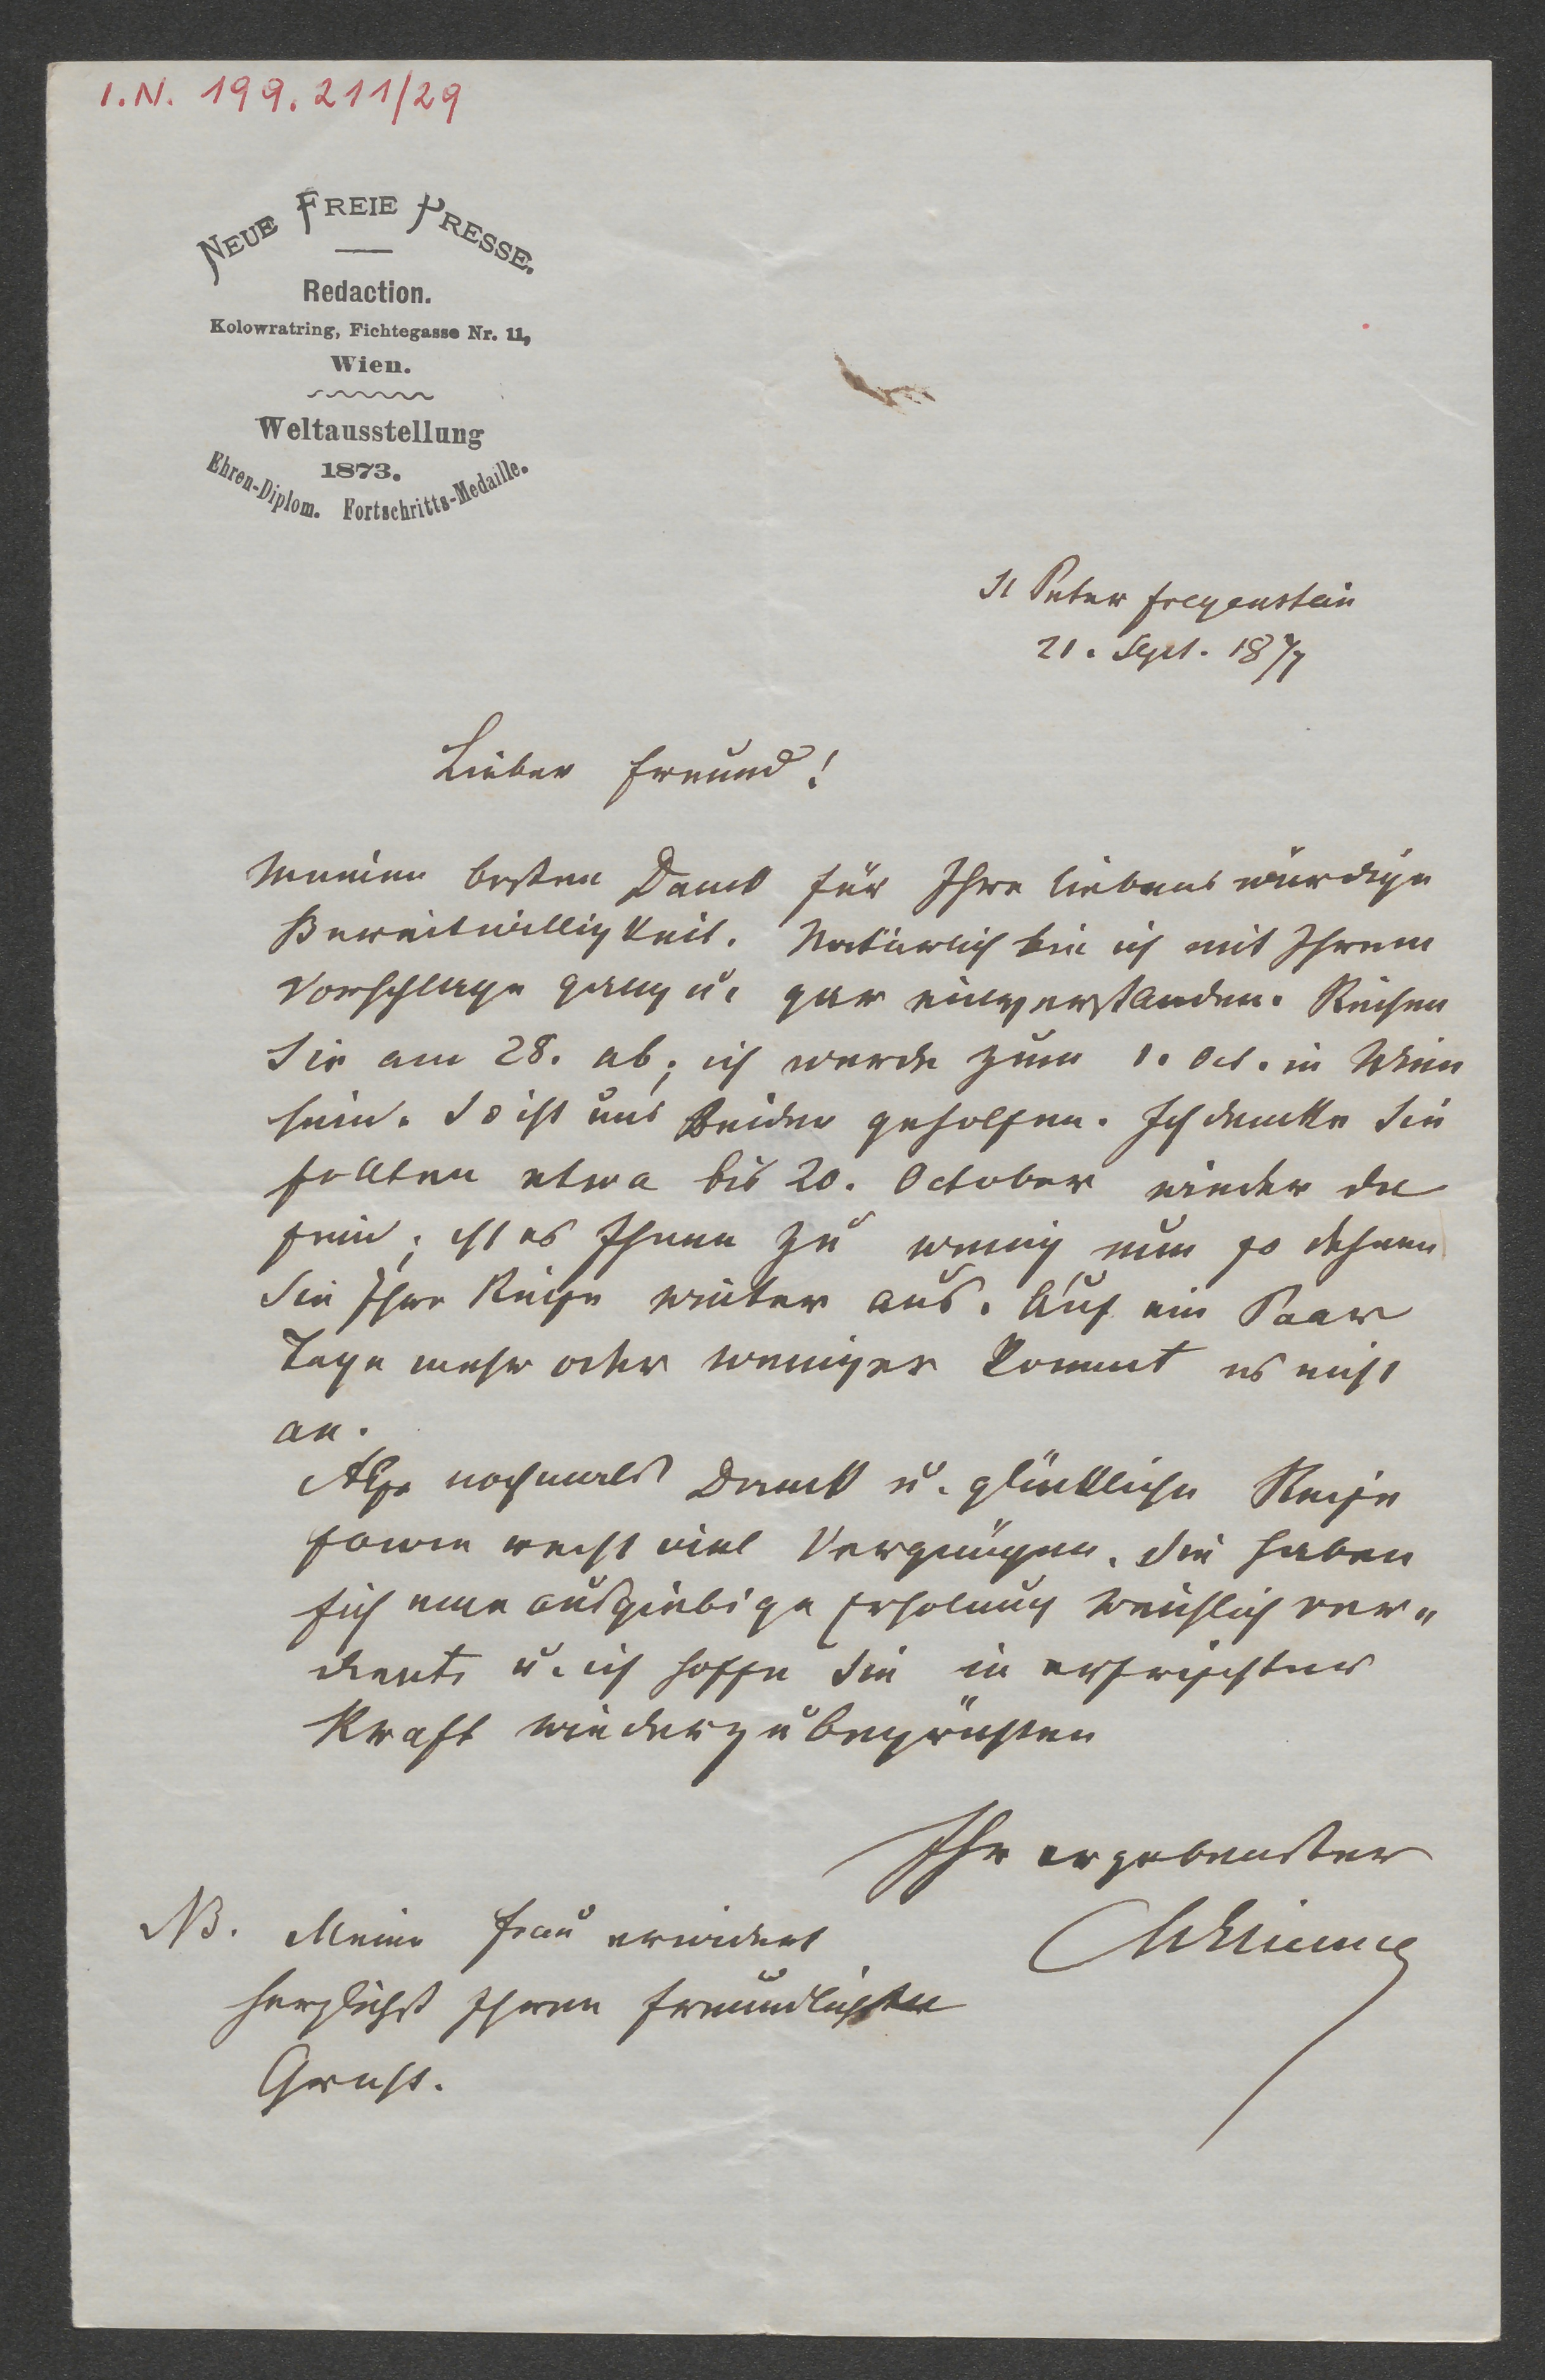 I.N. 199.211/29
NEUE FREIE PRESSE.
Redaction.
Kolowratring, Fichtegasse Nr. 11,
Wien.
Weltausstellung
1873.
Ehren-Diplom. Fortschritts-Medaille.
St Peter Freyenstein
21. Sept. 1877
Lieber Freund!
Meinen besten Dank für Ihre liebenswürdige
Bereitwilligkeit. Natürlich bin ich mit Ihrem
Vorschlage ganz u. gar einverstanden. Reisen
Sie am 28. ab; ich werde zum 1. Oct. in Wien
sein. So ist uns Beiden geholfen. Ich denke Sie
sollten etwa bis 20. October wieder da
sein; ist es Ihnen zu wenig nun so dehnen
Sie Ihre Reise weiter aus. Auf ein Paar
Tage mehr oder weniger kommt es nicht
an.
Also nochmals Dank u. glückliche Reise
sowie recht viel Vergnügen. Sie haben
sich eine ausgiebige Erholung weidlich ver-
dient u. ich hoffe Sie in erfrischter
Kraft wiederzubegrüssen
Ihr ergebenster
NB. Meine Frau erwidert
herzlichst Ihren freundlichen
Gruss.